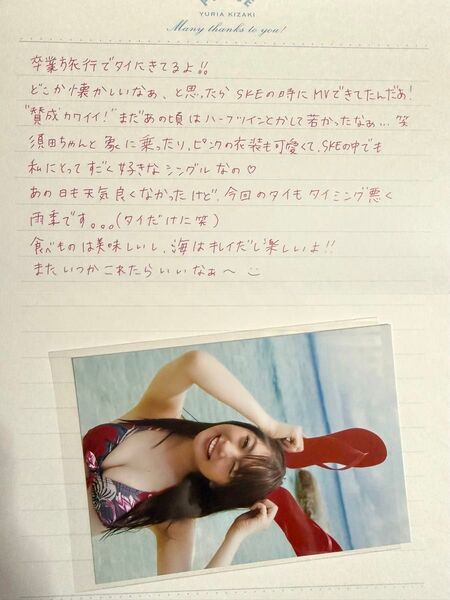 YURIA KIZAKI
Many thanks to you!
卒業旅行でタイにきてるよ!!
どこか懐かしいなぁ、と思ったらSKEの時にMVできてたんだぁ!
"賛成カワイイ!"まだあの頃はハーフツインとかして若かったなぁ...笑
須田ちゃんと象に乗ったり、ピンクの衣装も可愛くて、SKEの中でも
私にとってすごく好きなシングルなの♡
あの日も天気良くなかったけど、今回のタイもタイミング悪く
雨季です。。。(タイだけに笑)
食べものは美味しいし、海はキレイだし楽しいよ!!
またいつかこれたらいいなぁ〜